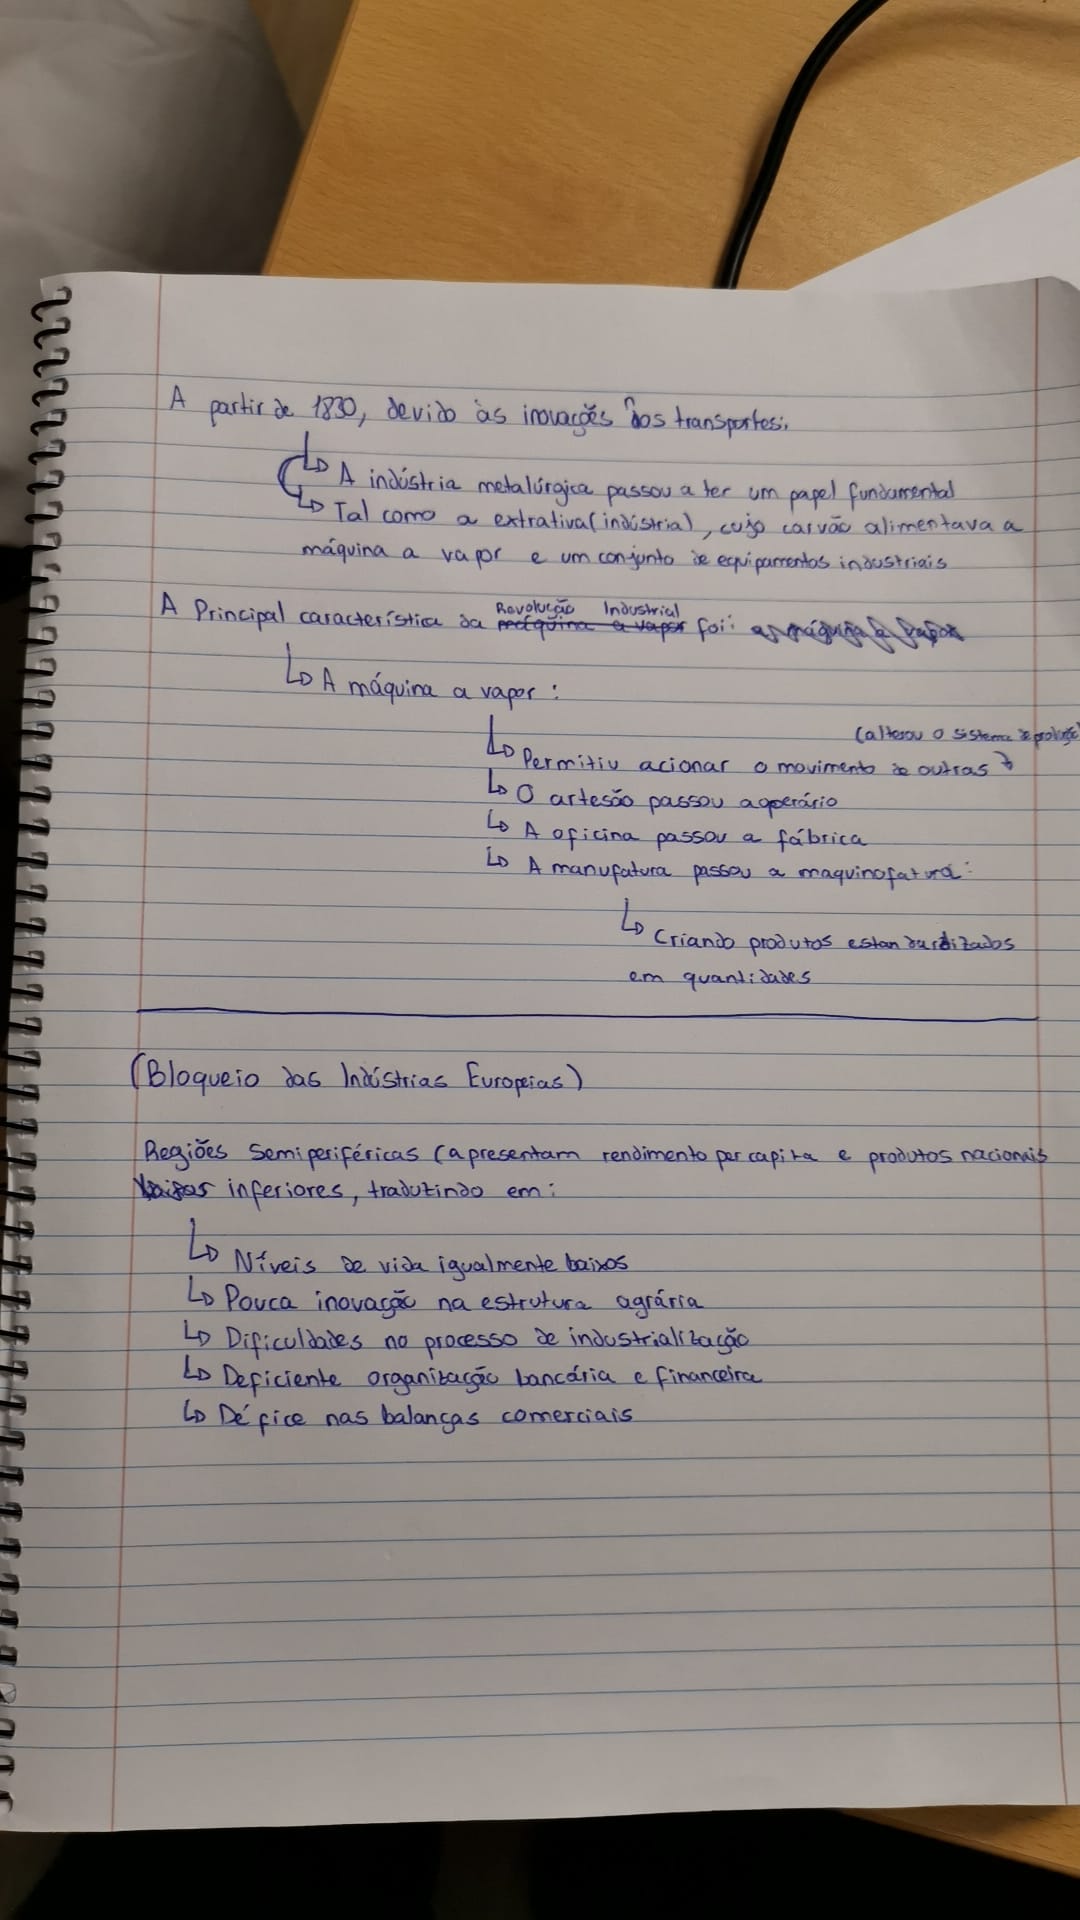 A partir de 1830, devido às inovações nos transportes:
↳ A indústria metalúrgica passou a ter um papel fundamental
↳ Tal como a extrativa (indústria), cujo carvão alimentava a
máquina a vapor e um conjunto de equipamentos industriais
Revolução Industrial
A Principal característica da máquina a vapor foi: a máquina a vapor
↳ A máquina a vapor:
(alterou o sistema de produção)
↳ Permitiu acionar o movimento de outras
↳ O artesão passou a operário
↳ A oficina passou a fábrica
↳ A manufatura passou a maquinofatura:
↳ Criando produtos estandardizados
em quantidades
(Bloqueio das Indústrias Europeias)
Regiões Semiperiféricas (apresentam rendimento per capita e produtos nacionais
baixos inferiores, tradutindo em:
↳ Níveis de vida igualmente baixos
↳ Pouca inovação na estrutura agrária
↳ Dificuldades no processo de industrialização
↳ Deficiente organização bancária e financeira
↳ Défice nas balanças comerciais